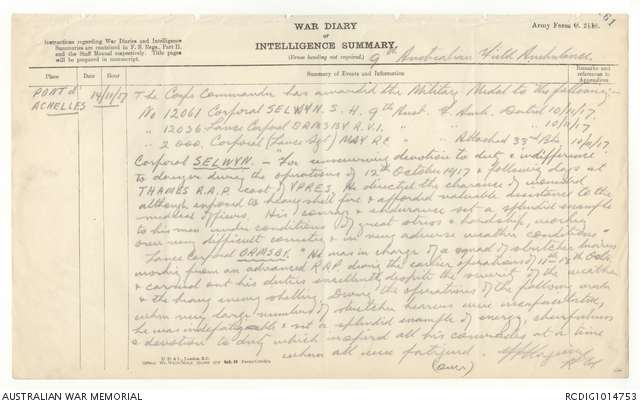 WAR DIARY
or
INTELLIGENCE SUMMARY.
(Erase heading not required).
9th Australian Field Ambulance.
Army Form C. 2118.
61
Instructions regarding War Diaries and Intelligence
Summaries are contained in F. S. Regs., Part II.
and the Staff Manual respectively. Title pages
will be prepared in manuscript.
Place Date Hour Summary of Events and Information Remarks and references to Appendices
PONT d' ACHELLES 14/11/17 The Corps Commander has awarded the Military Medal to the following:-
No 12061 Corporal SELWYN. S. H. 9th Aust. F. Amb. Dated 10/11/17.
" 12036 Lance Corporal ORMSBY R.V.1. " " 10/11/17.
" 2000. Corporal (Lance Sgt) MAY R.C " Attached 33rd Bn 10/11/17.
Corporal SELWYN. - "For unswerving devotion to duty & indifference
to danger during the operations of 12th October 1917 & following days at
THAMES R.A.P. (east of YPRES. He directed the clearance of wounded
although exposed to heavy shell fire & afforded valuable assistance to the
medical officers. His courage & endurance set a splendid example
to his men under conditions of great stress & hardship, working
over very difficult country & in very adverse weather conditions"
Lance Corporal ORMSBY. "He was in charge of a squad of stretcher bearers
working from an advanced R.A.P. during the earlier operations of Octr.
& carried out his duties excellently despite the severity of the weather
& the heavy enemy shelling. During the operations of the following week
when very large numbers of stretcher bearers were incapacitated,
he was indefatigable & set a splendid example of energy, cheerfulness
& devotion to duty which inspired all his comrades at a time
when all were fatigued.
(over)
AUSTRALIAN WAR MEMORIAL
RCDIG1014753